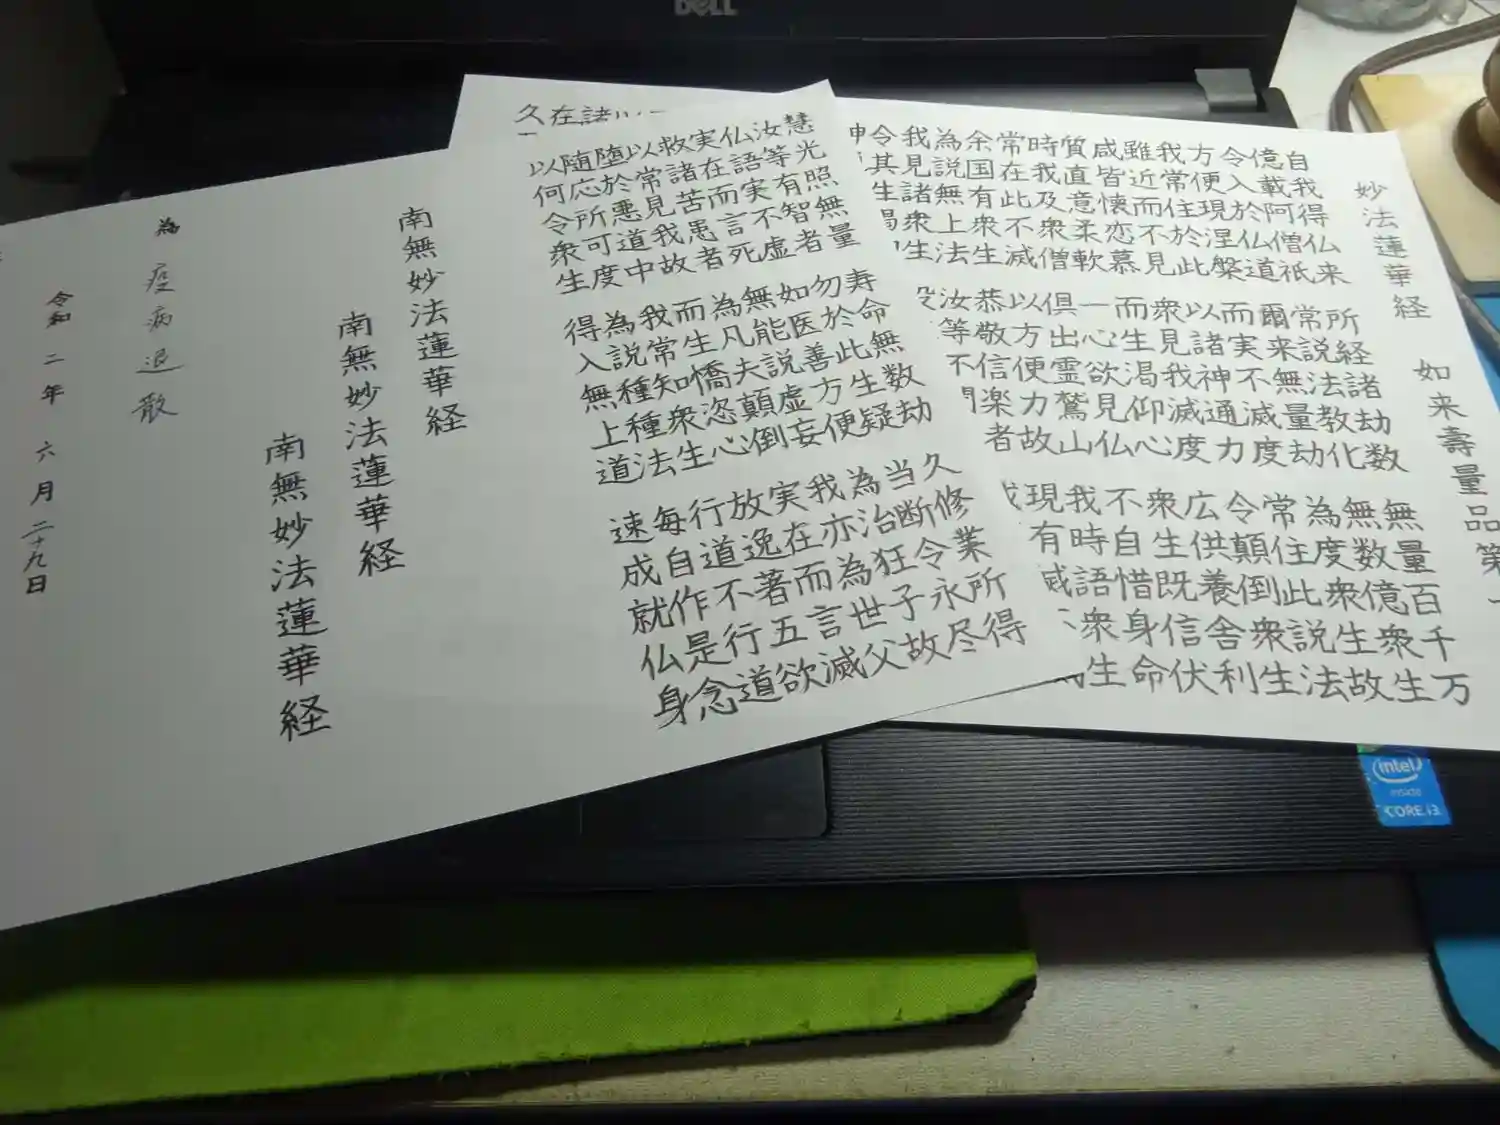 妙法蓮華経
如来壽量品第
自我得仏来 所経諸劫数 無量百千万
億載阿僧祇 常説法教化 無数億衆生
令入於仏道 爾来無量劫 為度衆生故
方便現涅槃 而実不滅度 常住此説法
我常住於此 以諸神通力 令顛倒衆生
雖近而不見 衆見我滅度 広供養舎利
咸皆懐恋慕 而生渇仰心 衆生既信伏
質直意柔軟 一心欲見仏 不自惜身命
時我及衆僧 俱出霊鷲山 我時語衆生
常在此不滅 以方便力故 現有滅
余国有衆生 恭敬信楽者
為説無上法 汝等不
我見諸衆生
令其生
久在諸
慧光照無量 寿命無数劫 久修業所得
汝等有智者 勿於此生疑 当断令永尽
仏語実不虚 如医善方便 為治狂子故
実在而言死 無能説虚妄 我亦為世父
救諸苦患者 為凡夫顛倒 実在而言滅
以常見我故 而生憍恣心 放逸著五欲
堕於悪道中 我常知衆生 行道不行道
随応所可度 為説種種法 毎自作是念
以何令衆生 得入無上道 速成就仏身
南無妙法蓮華経
南無妙法蓮華経
南無妙法蓮華経
為 疫病退散
令和二年六月二十九日
DELL
intel
inside
CORE i3